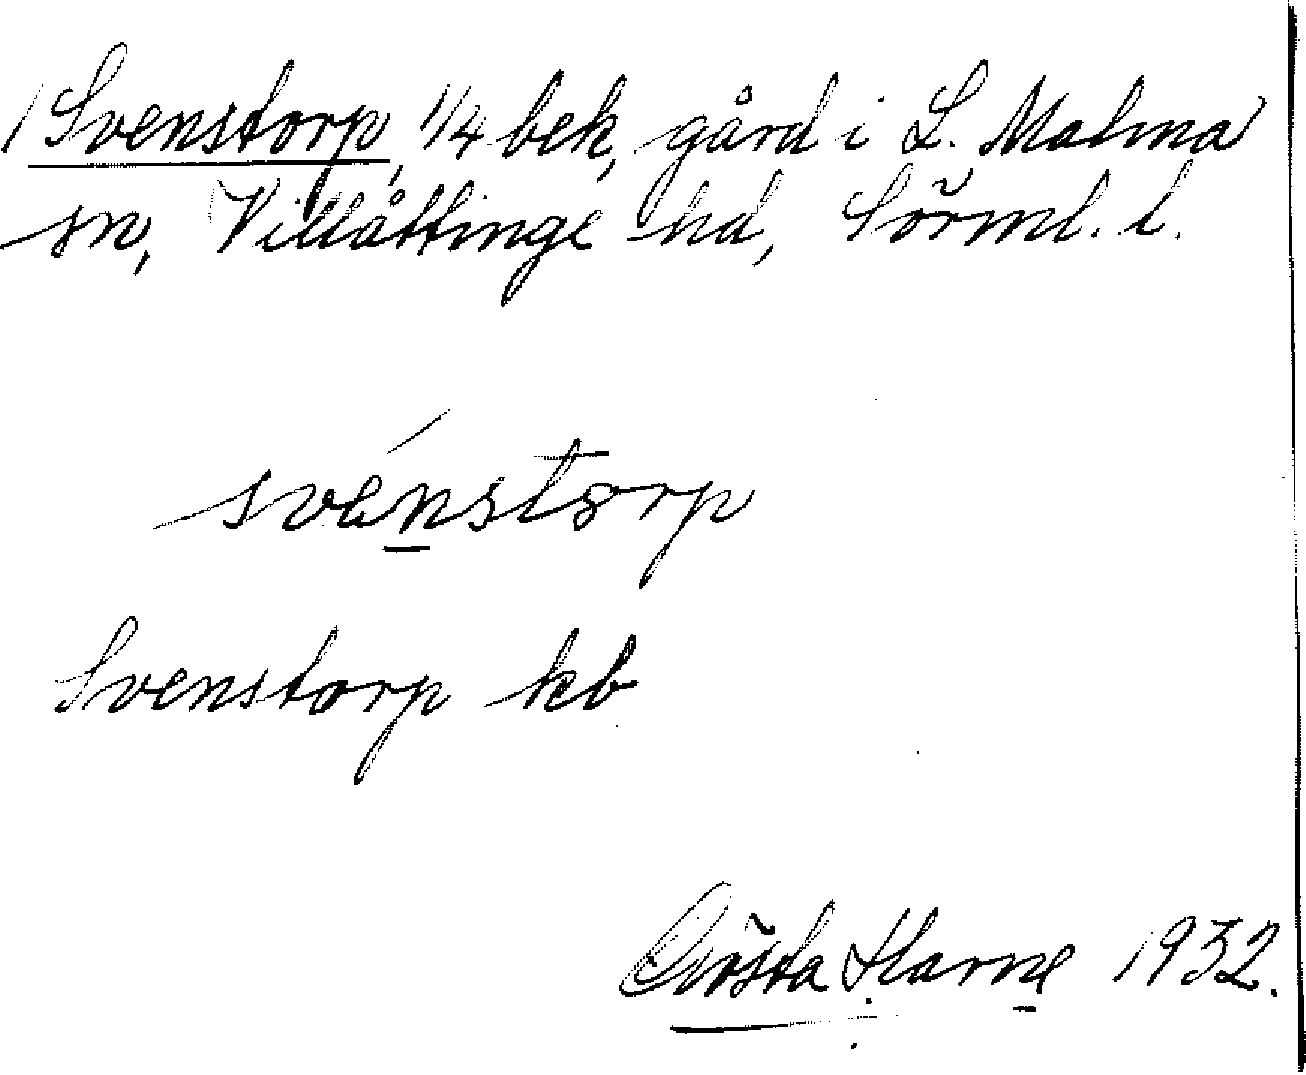 Svenstorp, 1/4 bek, gård i L. Malma
sn, Villåttinge hd, Sörml. l.
svénstorp
Svenstorp kb
Gösta Harne 1932.